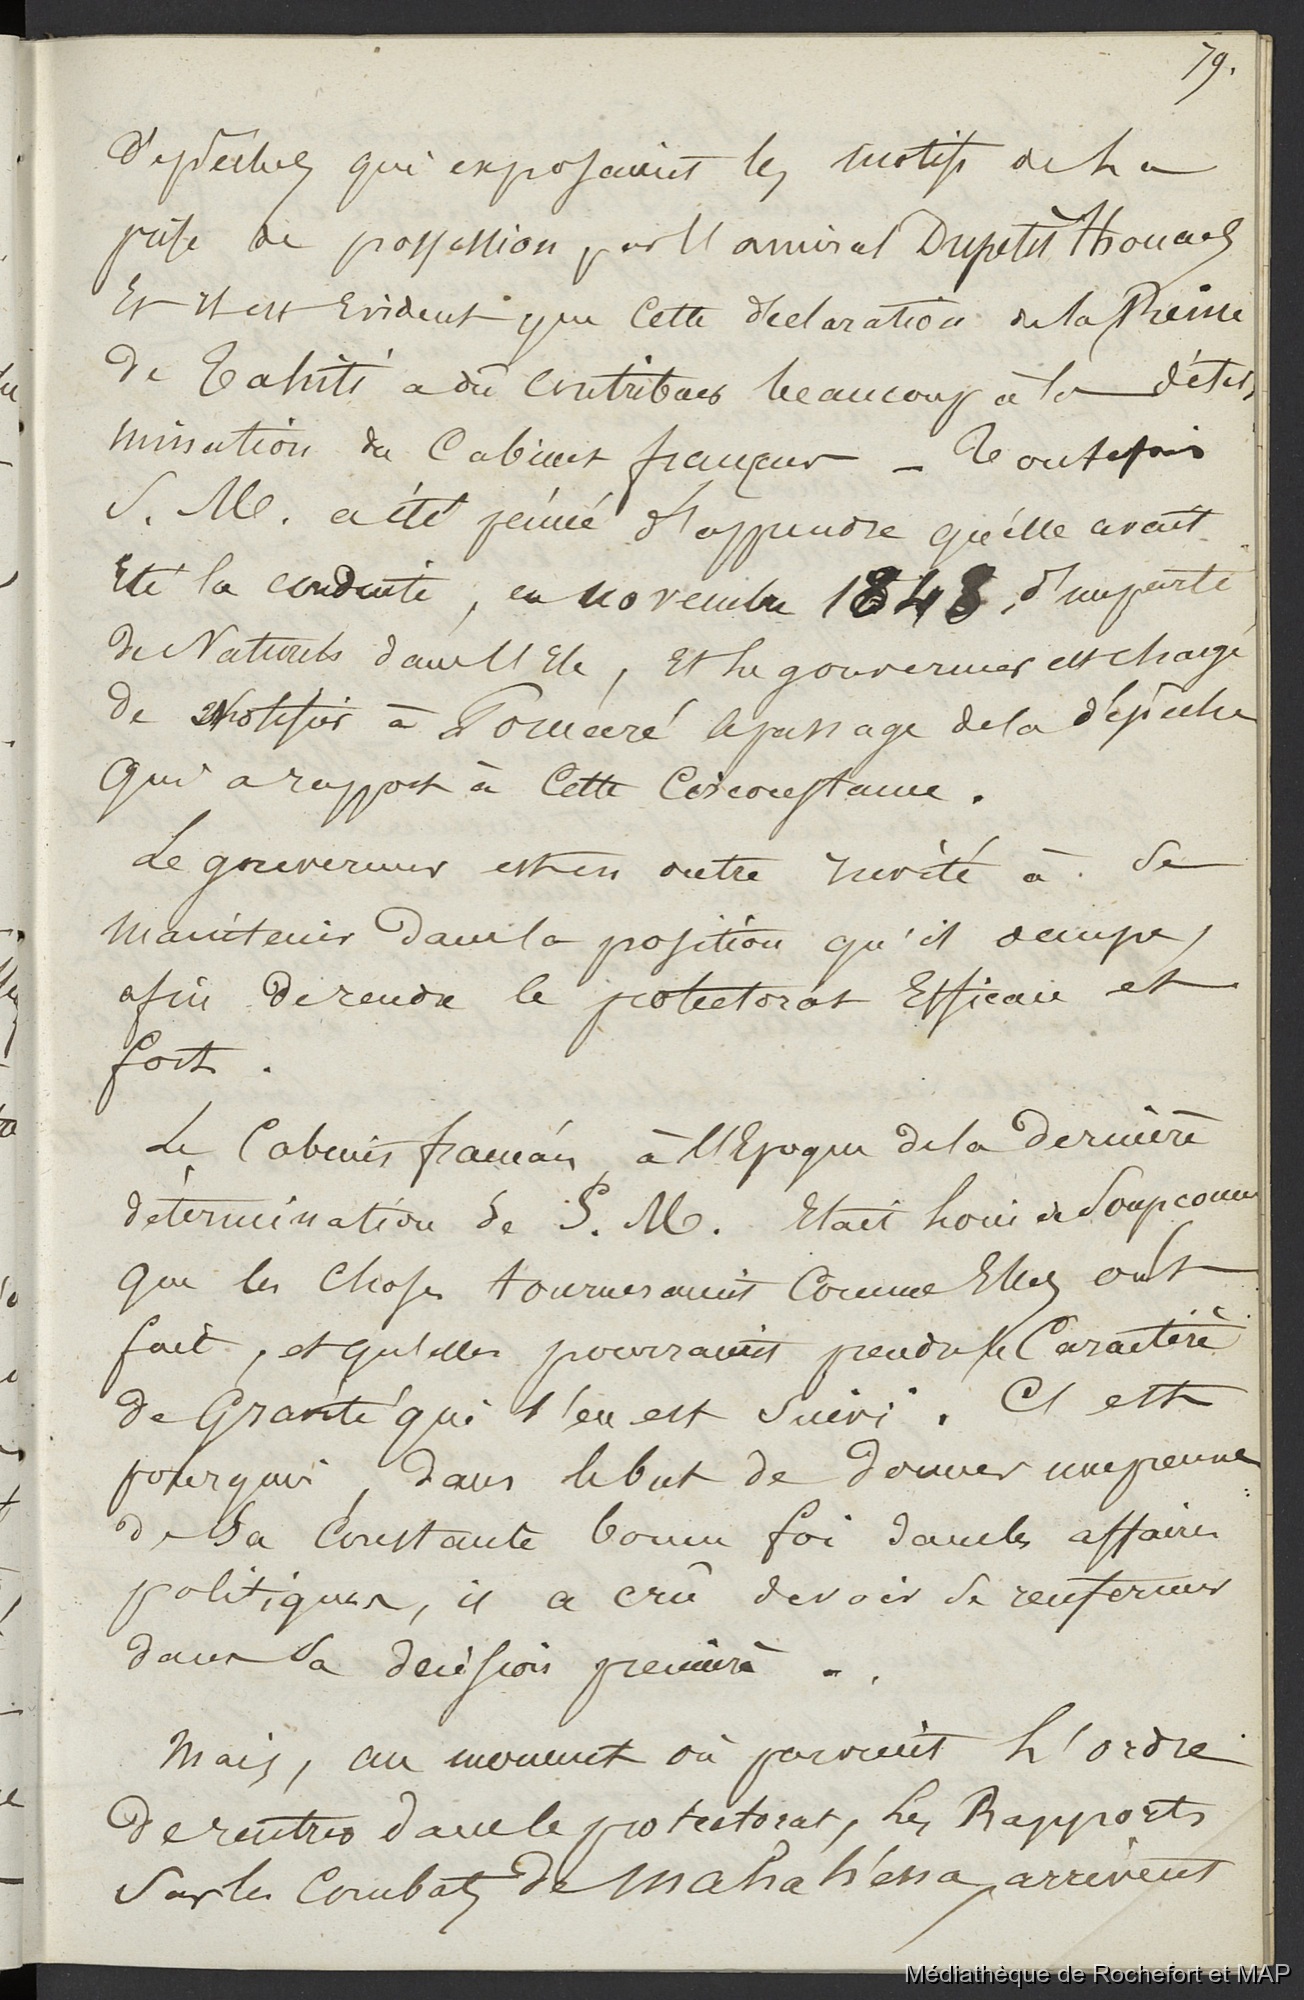 79.
dépêches qui exposaient les motifs de la
prise de possession par l'amiral Dupetit Thouars
Et il est Evident que Cette déclaration de la Reine
de Tahiti a dû Contribuer beaucoup à la déter
mination du Cabinet français - Toutefois
S. M. a été peiné d'apprendre qu'elle avait
Eté la conduite, en novembre 1843, d'une partie
de Naturels dans l'Ile, Et le gouverneur est chargé
de Notifier à Pomaré le passage de la dépêche
qui a rapport à Cette Circonstance.
Le gouverneur est en outre invité à se
maintenir dans la position qu'il occupe,
afin de rendre le protectorat Efficace et
fort.
Le Cabinet français, à l'Epoque de la dernière
détermination de S. M. Etait loin de Soupçonner
que les choses tourneraient Comme Elles ont
fait, et qu'elles pourraient prendre le Caractère
de Gravité qui s'en est suivi. C'est
pourquoi, dans le but de donner une preuve
de Sa Constante bonne foi dans les affaires
politiques, il a crû devoir se renfermer
dans Sa décision première -.
Mais, au moment où parvient l'ordre
de rentrer dans le protectorat, les Rapports
Sur les Combats de Mahahéna, arrivent
Médiathèque de Rochefort et MAP